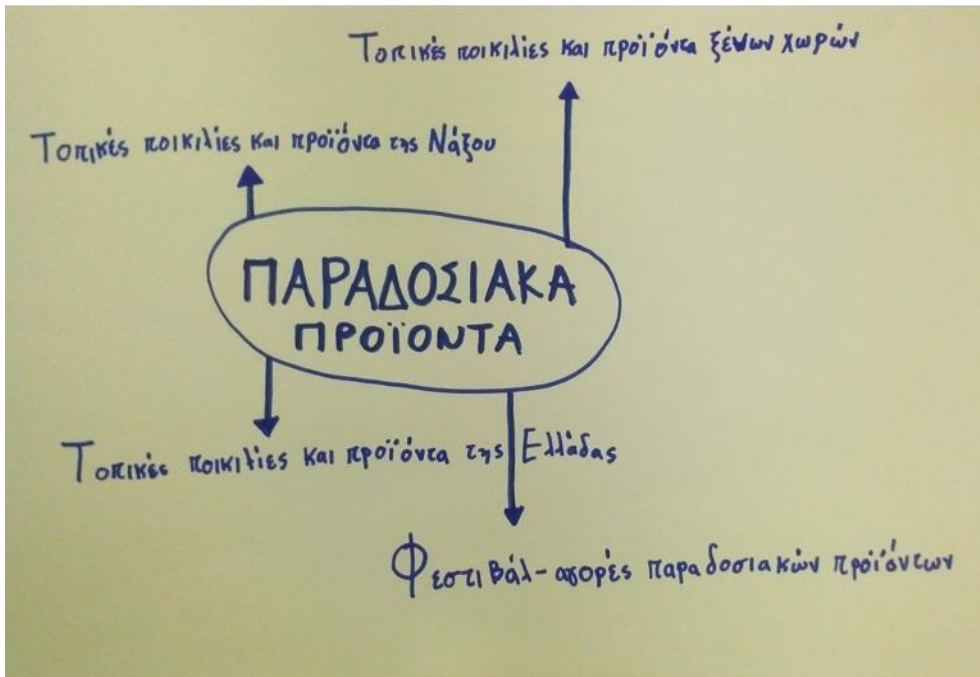 Τοπικές ποικιλίες και προϊόντα ξένων χωρών
Τοπικές ποικιλίες και προϊόντα της Νάξου
ΠΑΡΑΔΟΣΙΑΚΑ
ΠΡΟΪΟΝΤΑ
Τοπικές ποικιλίες και προϊόντα της Ελλάδας
Φεστιβάλ-αγορές παραδοσιακών προϊόντων